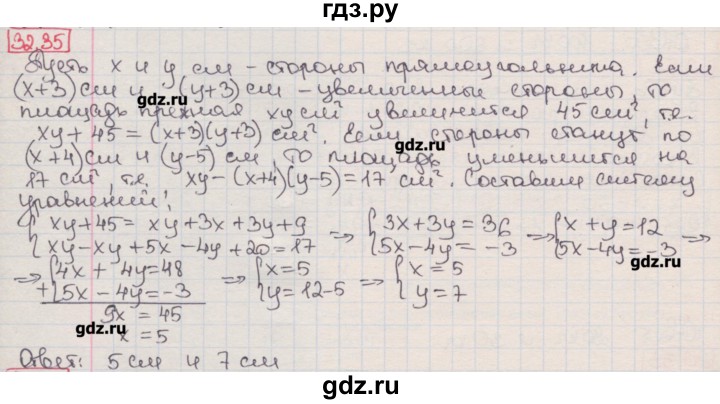 гдз.ру
32.35
Пусть x и y см – стороны прямоугольника. Если
(x+3) см и (y+3) см – увеличенные стороны, то
gdz.ru
площадь прежная xy см² увеличится 45 см², т.е.
xy + 45 = (x+3)(y+3) см². Если стороны станут по
(x+4) см и (y-5) см, то площадь уменьшится на
gdz.ru
17 см², т.е. xy – (x+4)(y-5) = 17 см². Составим систему
уравнений:
{ xy+45 = xy+3x+3y+9 ⇒ { 3x+3y = 36 ⇒ { x + y = 12 ⇒
{ xy – xy + 5x – 4y + 20 = 17 { 5x – 4y = –3 { 5x – 4y = –3
gdz.ru
⇒ + { 4x + 4y = 48 ⇒ { x = 5 ⇒ { x = 5
{ 5x – 4y = –3 { y = 12-5 { y = 7
9x = 45
gdz.ru
x = 5
Ответ: 5 см и 7 см
gdz.ru